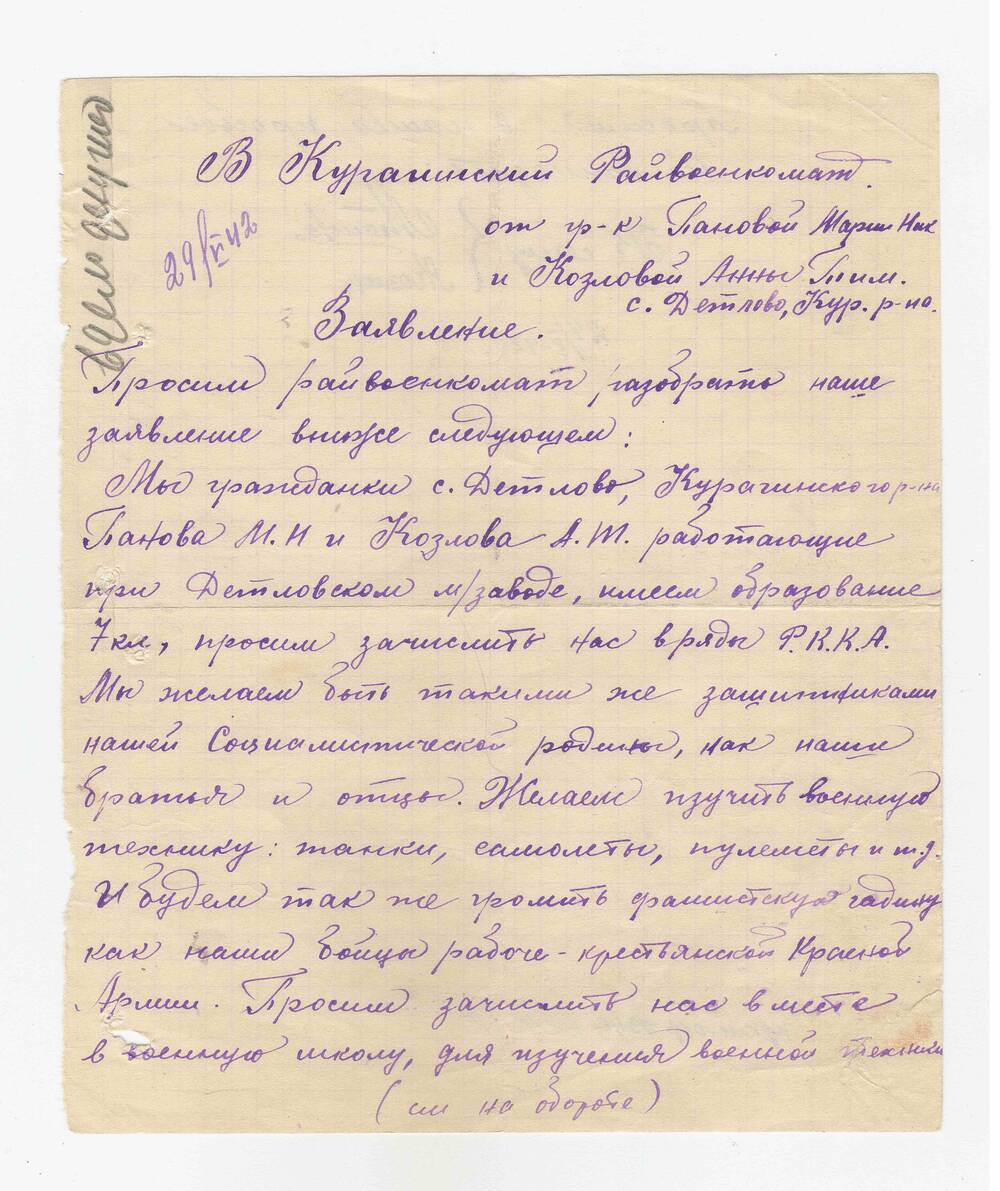 В Курагинский Райвоенкомат.
от гр-к Пановой Марии Ник
и Козловой Анны Тим.
с. Детлово, Кур. р-на.
29/VI 42
Заявление.
Просим райвоенкомат, разобрать наше
заявление в ниже следующем:
Мы гражданки с. Детлово, Курагинского р-на
Панова М.Н и Козлова А.Т. работающие
при Детловском м/заводе, имеем образование
7кл, просим зачислить нас в ряды Р.К.К.А.
Мы желаем быть такими же защитниками
нашей Социалистической родины, как наши
братья и отцы. Желаем изучить военную
технику: танки, самолеты, пулеметы и т.д.
И будем так же громить фашистскую гадину
как наши бойцы рабоче-крестьянской Красной
Армии. Просим зачислить нас вместе
в военную школу, для изучения военной техники
(см на обороте)